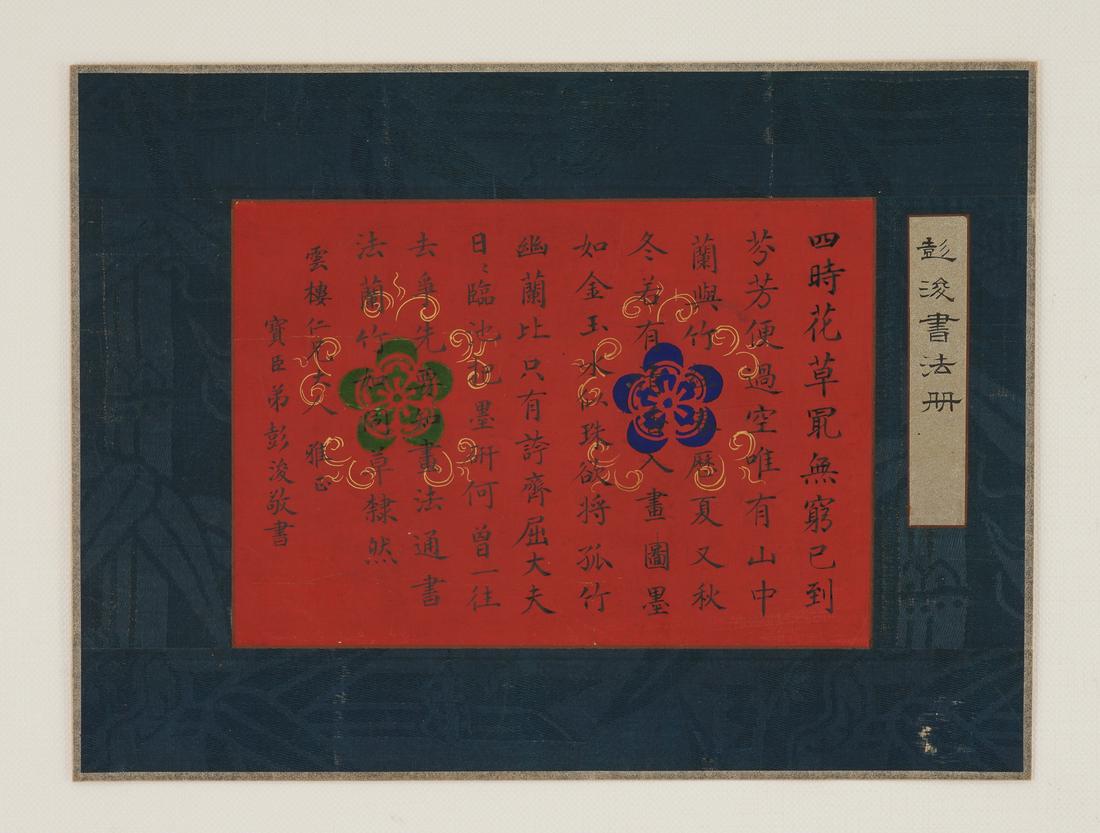 彭浚書法册
四時花草冣無窮已到
芬芳便過空唯有山中
蘭與竹經春歷夏又秋
冬若有入畫圖墨
如金玉水似珠欲將孤竹
幽蘭比只有誇齊屈大夫
日〻臨池把墨研何曾一往
去爭先要知畫法通書
法蘭竹如同草隸然
雲樓仁兄大人 雅正
寶臣弟彭浚敬書